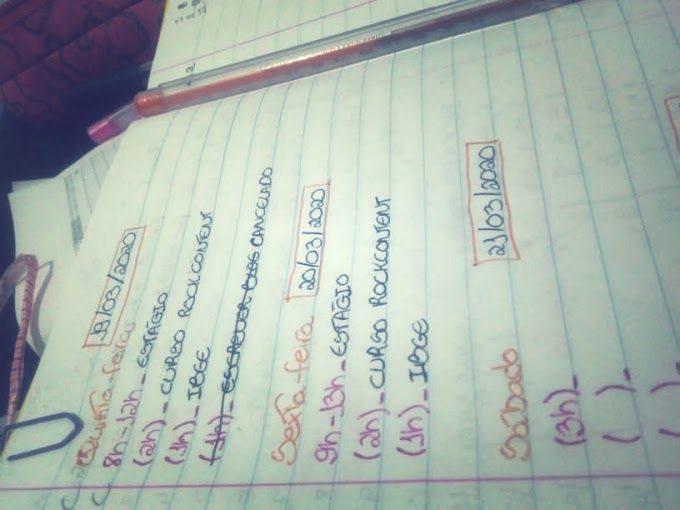 Quinta-feira 19/03/2020
8h-12h_ESTÁGIO
(2h)_CURSO ROCKCONTENT
(1h)_IBGE
(1h)_ESCREVER BLOG CANCELADO
Sexta-feira 20/03/2020
9h-13h_ESTÁGIO
(2h)_CURSO ROCKCONTENT
(1h)_IBGE
Sábado 21/03/2020
(3h)_
( )_
( )_